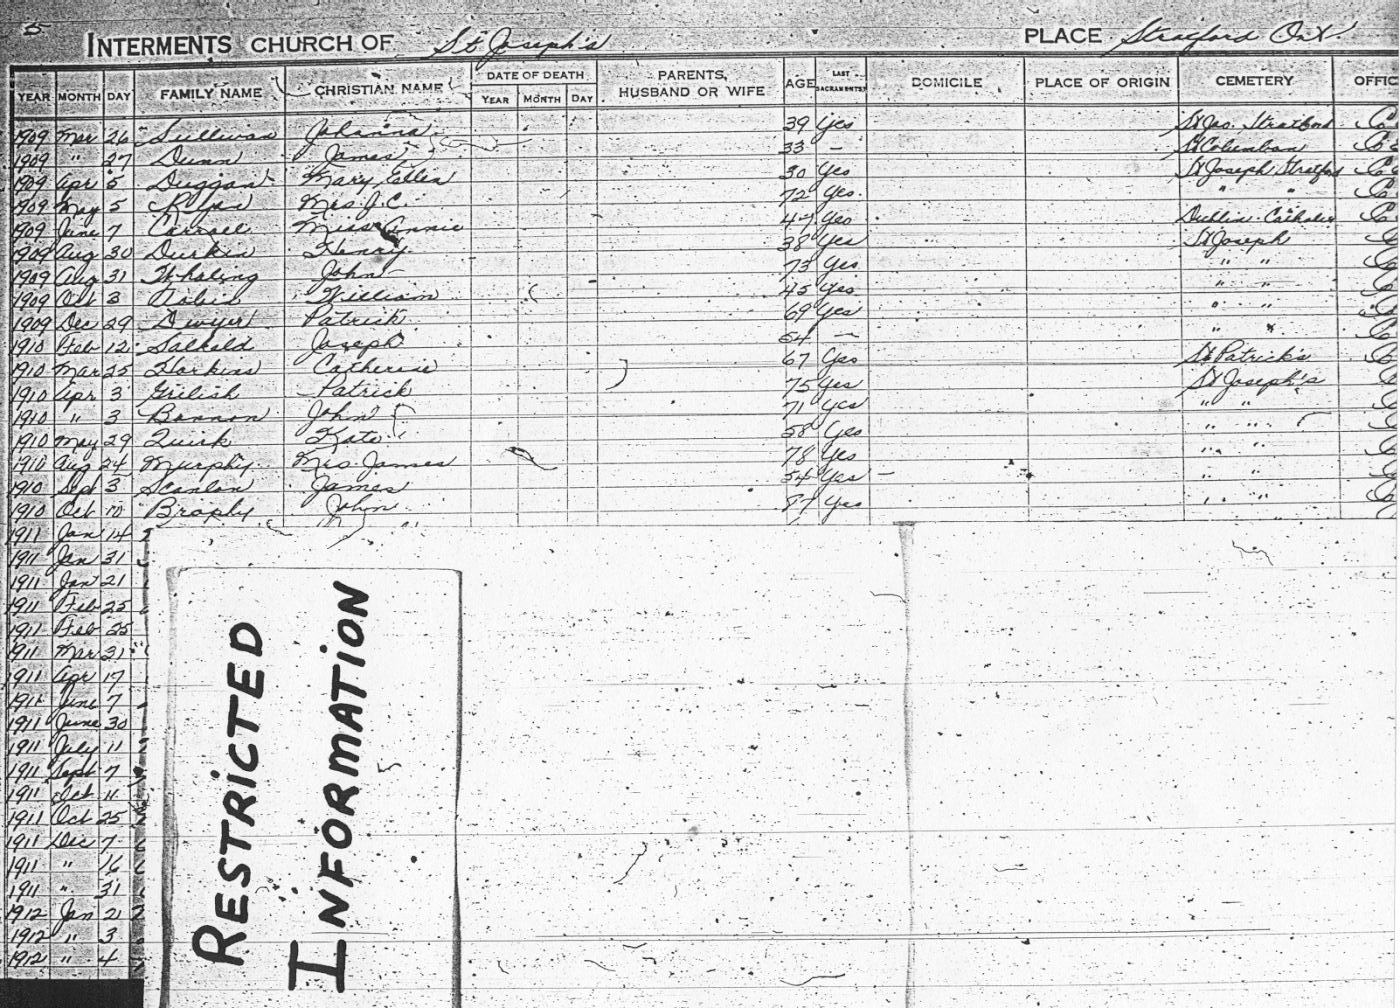 5 INTERMENTS CHURCH OF St Joseph's PLACE Stratford Ont.
YEAR MONTH DAY FAMILY NAME CHRISTIAN NAME DATE OF DEATH YEAR MONTH DAY PARENTS, HUSBAND OR WIFE AGE LAST SACRAMENTS DOMICILE PLACE OF ORIGIN CEMETERY OFFIC
1909 Mar 26 Sullivan Johanna 39 Yes St Jos. Stratford
1909 " 27 Dunn James 33 - St Columban
1909 Apr 5 Duggan Mary Ellen 30 Yes St Joseph Stratford
1909 May 5 Mrs J.C. 72 Yes " "
1909 June 7 Carroll Miss Annie 47 Yes Dublin Catholic
1909 Aug 30 Durkin Henry 38 Yes St Joseph
1909 Aug 31 Whaling John 73 Yes " "
1909 Oct 3 Tobin William 45 Yes " "
1909 Dec 29 Dwyer Patrick 69 Yes " "
1910 Feb 12 Salkeld Joseph 64 - " "
1910 Mar 25 Harkins Catherine 67 Yes St Patrick's
1910 Apr 3 Patrick 75 Yes St Joseph's
1910 " 3 Bannon John 71 Yes " "
1910 May 29 Quirk Kate 58 Yes " "
1910 Aug 24 Murphy Mrs James 78 Yes " "
1910 Sept 3 Scanlon James 54 Yes " "
1910 Oct 10 Brophy John 87 Yes " "
1911 Jan 14
1911 Jan 31
1911 Jan 21
1911 Feb 25
1911 Feb 25
1911 Mar 31
1911 Apr 17
1911 June 7
1911 June 30
1911 July 11
1911 Sept 7
1911 Oct 11
1911 Oct 25
1911 Dec 7
1911 " 16
1911 " 31
1912 Jan 21
1912 " 3
1912 " 4
RESTRICTED
INFORMATION